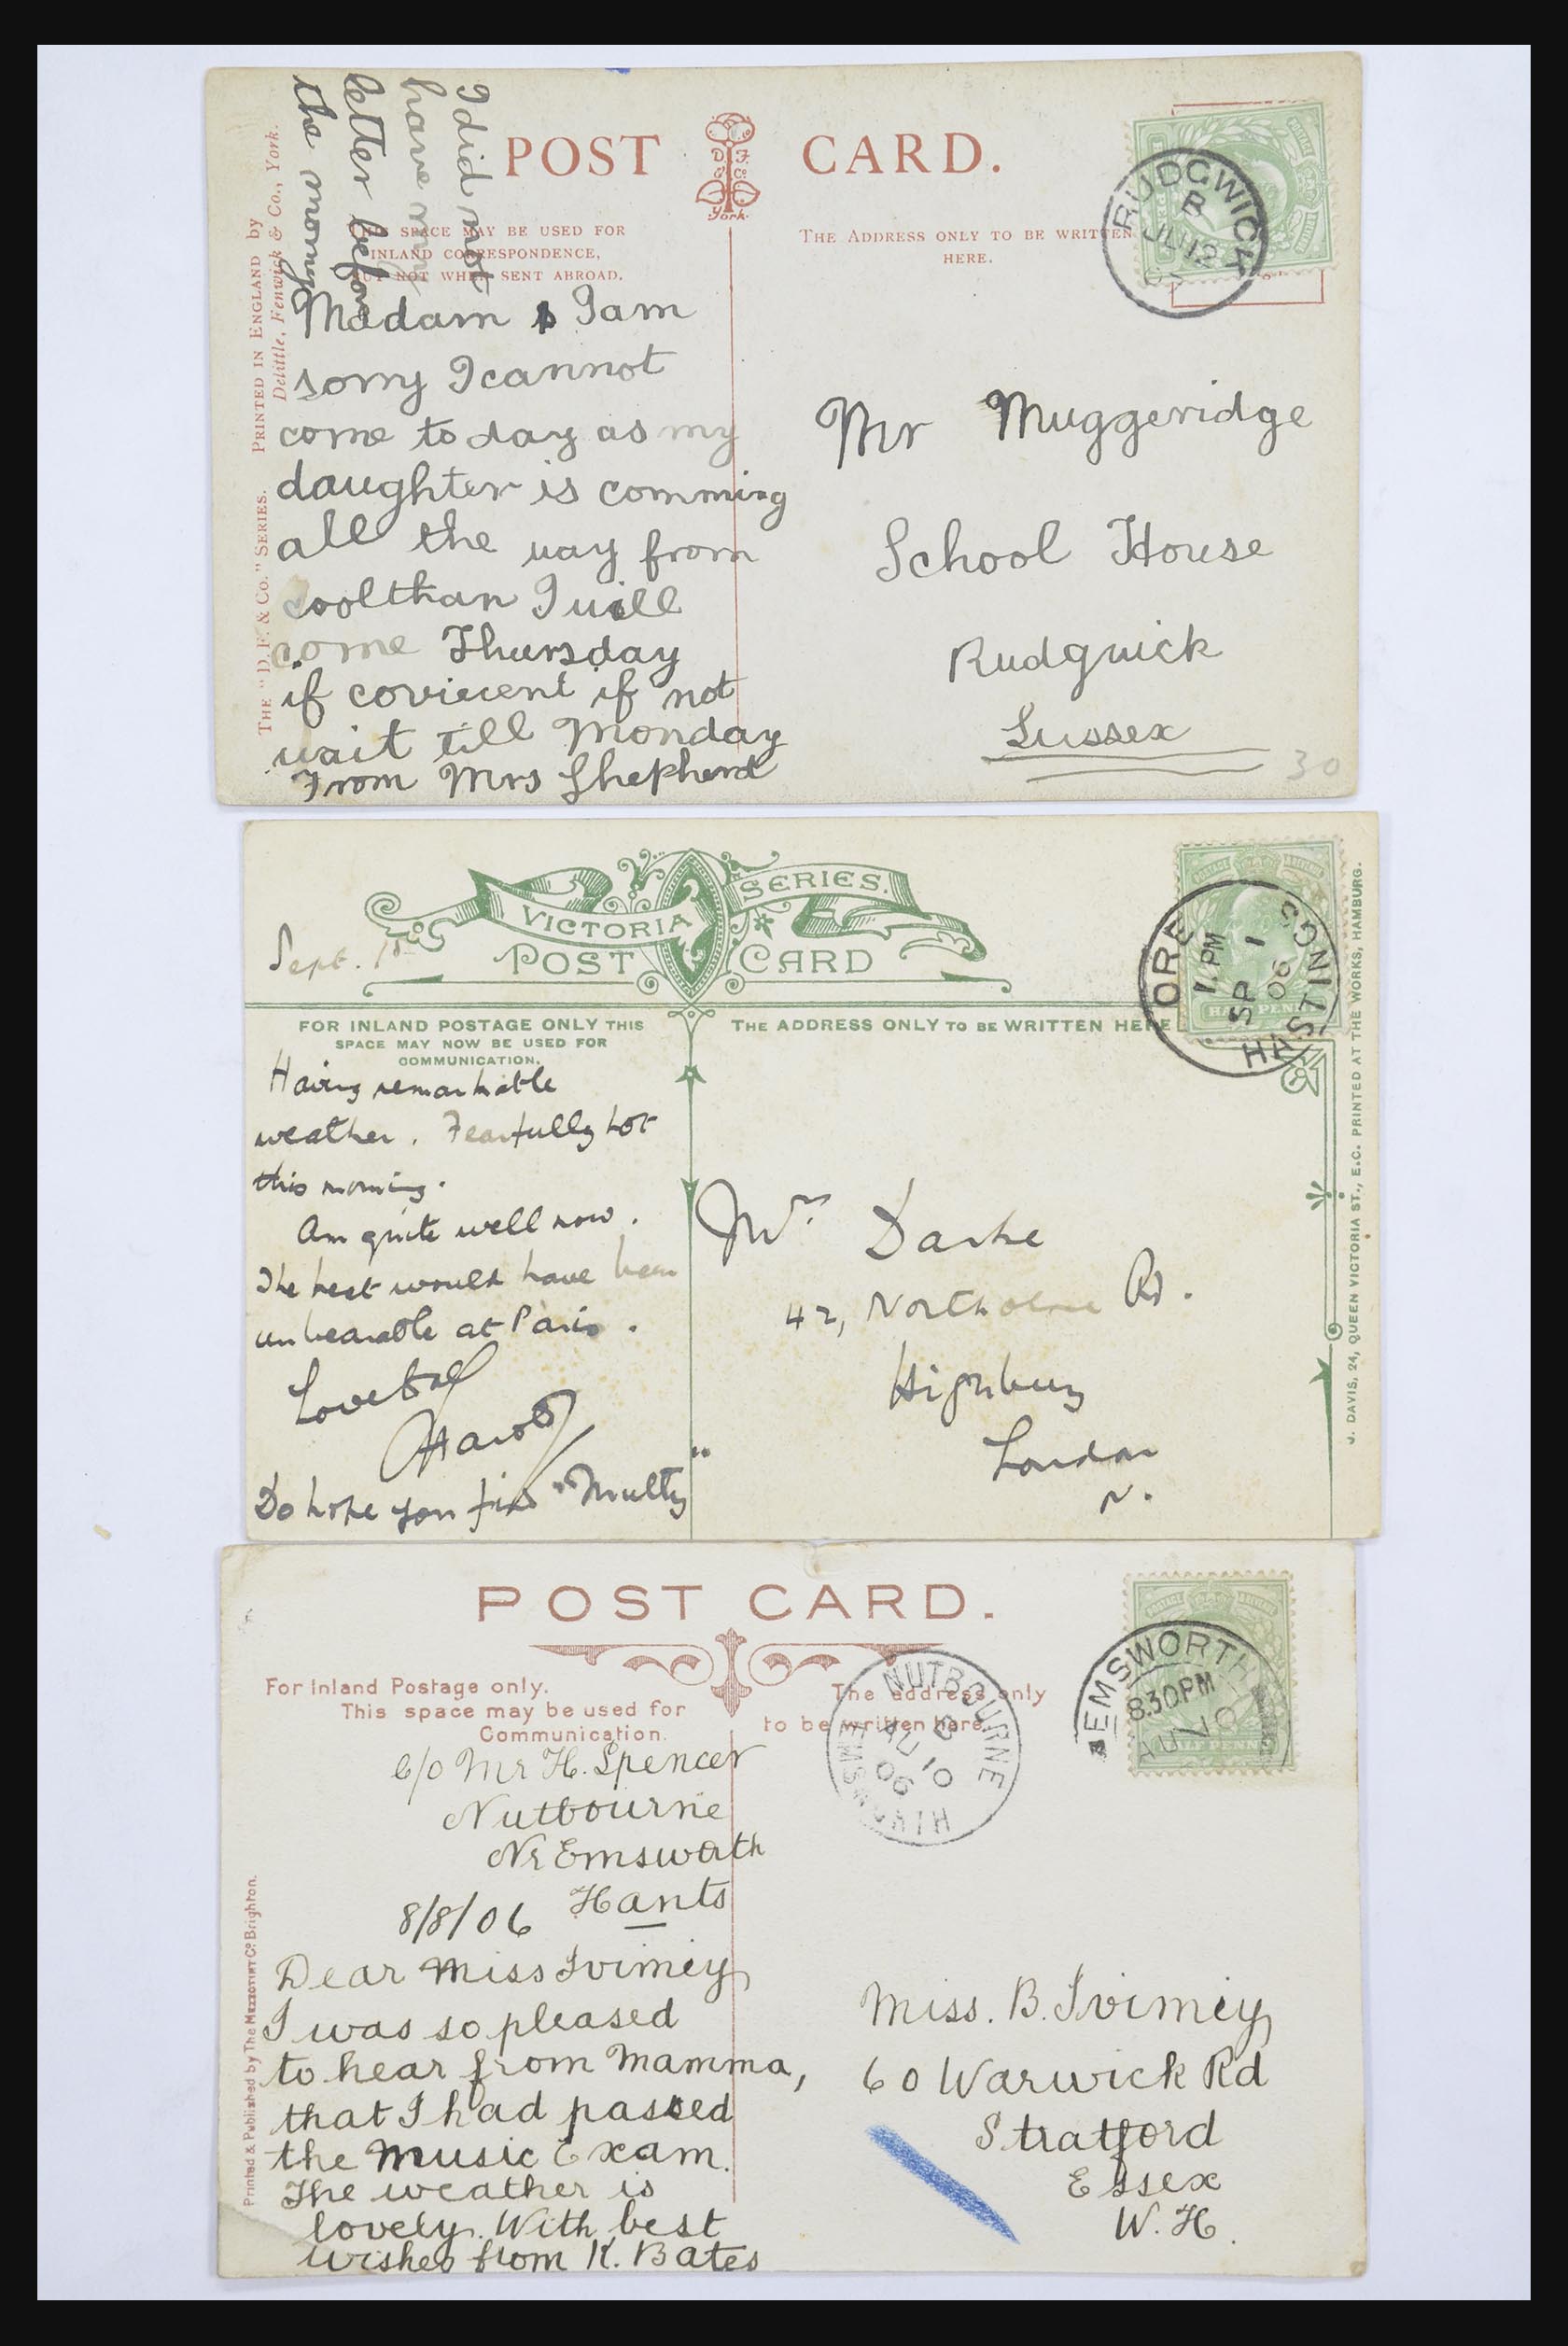 I did not
have my
letter before
the morning
POST CARD.
D. F. & Co. York.
THIS SPACE MAY BE USED FOR
INLAND CORRESPONDENCE,
BUT NOT WHEN SENT ABROAD.
THE ADDRESS ONLY TO BE WRITTEN
HERE.
RUDGWICK
B
JU 12
THE "D. F. & Co." SERIES. PRINTED IN ENGLAND by
Delittle, Fenwick & Co., York.
Madam I am
sorry I cannot
come to day as my
daughter is comming
all the way from
coolthan I will
come Thursday
if covicent if not
wait till Monday
From Mrs Shepherd
Mr Muggeridge
School House
Rudgwick
Sussex
30
VICTORIA SERIES.
POST CARD
Sept. 1st
FOR INLAND POSTAGE ONLY THIS
SPACE MAY NOW BE USED FOR
COMMUNICATION.
THE ADDRESS ONLY TO BE WRITTEN HERE
ORE
1 PM
SP 1
06
HASTINGS
J. DAVIS, 24, QUEEN VICTORIA ST., E.C. PRINTED AT THE WORKS, HAMBURG.
Having remarkable
weather. Fearfully hot
this morning.
Am quite well now.
The heat would have been
unbearable at Paris.
Love to all
Harold
Do hope you find "Multy"
Mrs Darke
42, Northolme Rd.
Highbury
London
N.
POST CARD.
For Inland Postage only.
This space may be used for
Communication.
The address only
to be written here.
NUTBOURNE
AU 10
06
EMSWORTH
EMSWORTH
8.30PM
AU 10
HALFPENNY
Printed & Published by The Mezzotint Co. Brighton.
c/o Mr H. Spencer
Nutbourne
Nr Emsworth
Hants
8/8/06
Dear Miss Ivimey
I was so pleased
to hear from Mamma,
that I had passed
the Music Exam.
The weather is
lovely. With best
wishes from K. Bates
Miss. B. Ivimey
60 Warwick Rd
Stratford
Essex
W. H.